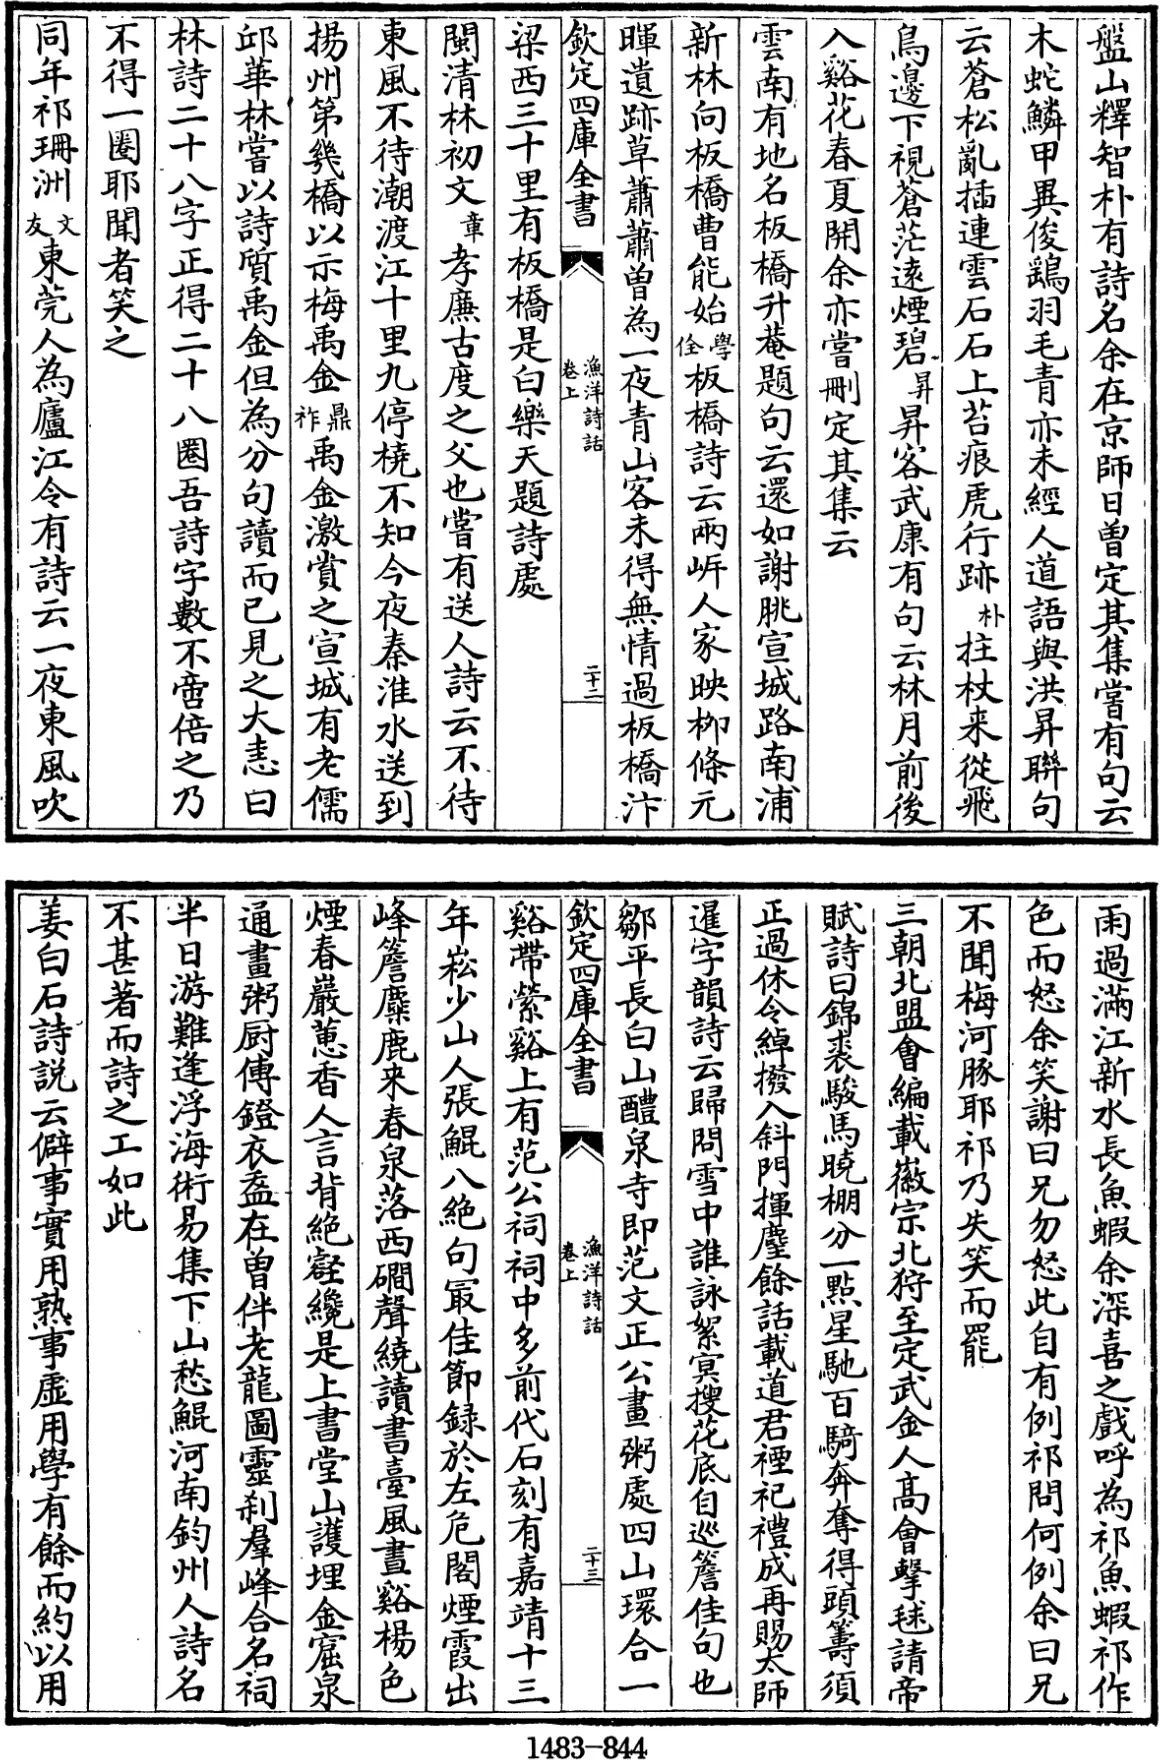 盤山釋智朴有詩名余在京師日曽定其集嘗有句云
木蛇鱗甲異俊鶏羽毛青亦未經人道語與洪昇聯句
云蒼松亂插連雲石石上苔痕虎行跡朴拄杖来從飛
鳥邊下視蒼茫逺煙碧昇昇客武康有句云林月前後
入谿花春夏開余亦嘗刪定其集云
雲南有地名板橋升菴題句云還如謝朓宣城路南浦
新林向板橋曹能始學佺板橋詩云兩岍人家映柳條元
暉遺跡草蕭蕭曽為一夜青山客未得無情過板橋汴
欽定四庫全書
漁洋詩話
卷上
二十二
梁西三十里有板橋是白樂天題詩處
閩清林初文章孝廉古度之父也嘗有送人詩云不待
東風不待潮渡江十里九停橈不知今夜秦淮水送到
揚州第幾橋以示梅禹金鼎祚禹金激賞之宣城有老儒
邱華林嘗以詩質禹金但為分句讀而已見之大恚曰
林詩二十八字正得二十八圈吾詩字數不啻倍之乃
不得一圈耶聞者笑之
同年祁珊洲文友東莞人為廬江令有詩云一夜東風吹
雨過滿江新水長魚蝦余深喜之戲呼為祁魚蝦祁作
色而怒余笑謝曰兄勿怒此自有例祁問何例余曰兄
不聞梅河豚耶祁乃失笑而罷
三朝北盟會編載徽宗北狩至定武金人髙會擊毬請帝
賦詩曰錦裘駿馬曉棚分一點星馳百騎奔奪得頭籌須
正過休令綽撥入斜門揮麈餘話載道君禋祀禮成再賜太師
暹字韻詩云歸問雪中誰詠絮冥搜花底自巡簷佳句也
鄒平長白山醴泉寺即范文正公畫粥處四山環合一
欽定四庫全書
漁洋詩話
卷上
二十三
谿帶縈谿上有范公祠祠中多前代石刻有嘉靖十三
年崧少山人張鯤八絶句㝡佳節録於左危閣煙霞出
峰簷麋鹿来春泉落西磵聲繞讀書臺風晝谿楊色
煙春巖蕙香人言背絶壑纔是上書堂山護埋金窟泉
通畫粥厨傅鐙衣盋在曽伴老龍圖靈刹羣峰合名祠
半日游難逢浮海術易集下山愁鯤河南鈞州人詩名
不甚著而詩之工如此
姜白石詩説云僻事實用熟事虛用學有餘而約以用
1483-844